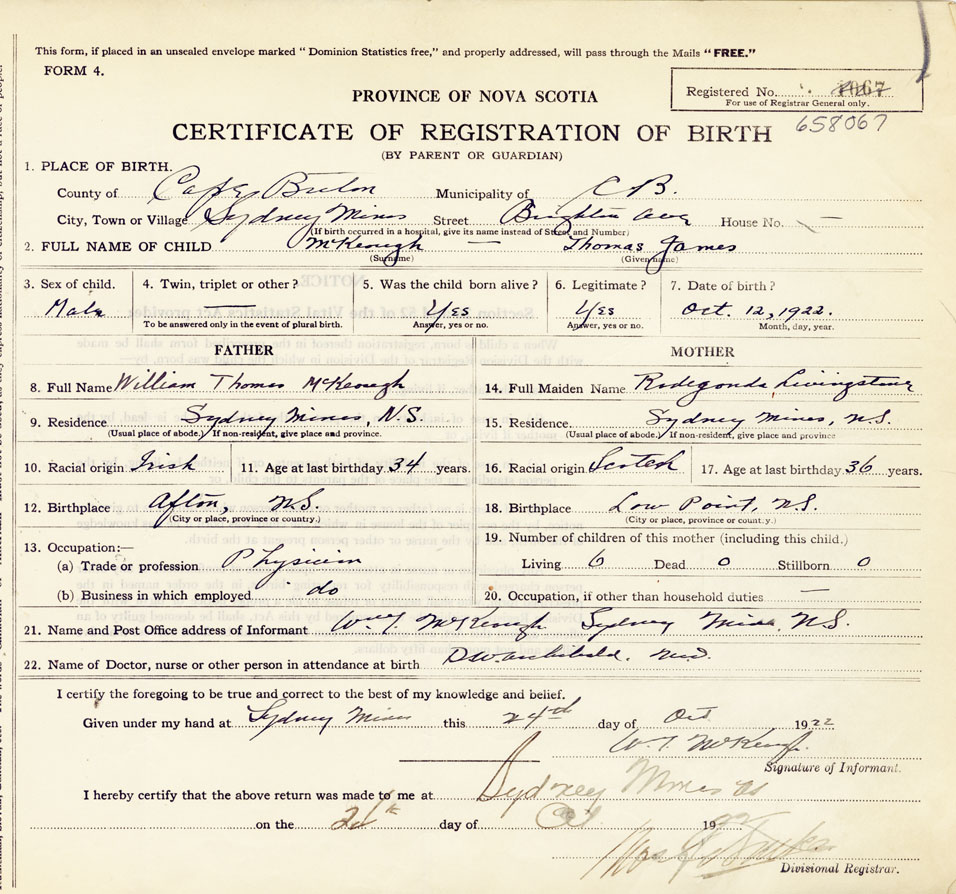 This form, if placed in an unsealed envelope marked "Dominion Statistics free," and properly addressed, will pass through the Mails "FREE."
FORM 4.
Registered No. 067
For use of Registrar General only.
658067
PROVINCE OF NOVA SCOTIA
CERTIFICATE OF REGISTRATION OF BIRTH
(BY PARENT OR GUARDIAN)
1. PLACE OF BIRTH.
County of Cape Breton Municipality of C B.
City, Town or Village Sydney Mines Street Brighton Ave House No. —
(If birth occurred in a hospital, give its name instead of Street and Number)
2. FULL NAME OF CHILD McKeough — Thomas James
(Surname) (Given name)
3. Sex of child. 4. Twin, triplet or other? 5. Was the child born alive? 6. Legitimate? 7. Date of birth?
Male — Yes Yes Oct. 12, 1922.
To be answered only in the event of plural birth. Answer, yes or no. Answer, yes or no. Month, day, year.
FATHER
8. Full Name William Thomas McKeough
9. Residence Sydney Mines, N.S.
(Usual place of abode.) If non-resident, give place and province.
10. Racial origin Irish 11. Age at last birthday 34 years.
12. Birthplace Afton, N.S.
(City or place, province or country.)
13. Occupation:—
(a) Trade or profession Physician
(b) Business in which employed do
MOTHER
14. Full Maiden Name Radegonda Livingstone
15. Residence Sydney Mines, N.S.
(Usual place of abode.) If non-resident, give place and province
16. Racial origin Scotch 17. Age at last birthday 36 years.
18. Birthplace Low Point, N.S.
(City or place, province or country.)
19. Number of children of this mother (including this child.)
Living 6 Dead 0 Stillborn 0
20. Occupation, if other than household duties —
21. Name and Post Office address of Informant Wm T. McKeough Sydney Mines, N.S.
22. Name of Doctor, nurse or other person in attendance at birth D W Archibald. M.D.
I certify the foregoing to be true and correct to the best of my knowledge and belief.
Given under my hand at Sydney Mines this 24th day of Oct 1922
W. T. McKeough
Signature of Informant.
I hereby certify that the above return was made to me at Sydney Mines
on the day of Oct 1922
Divisional Registrar.